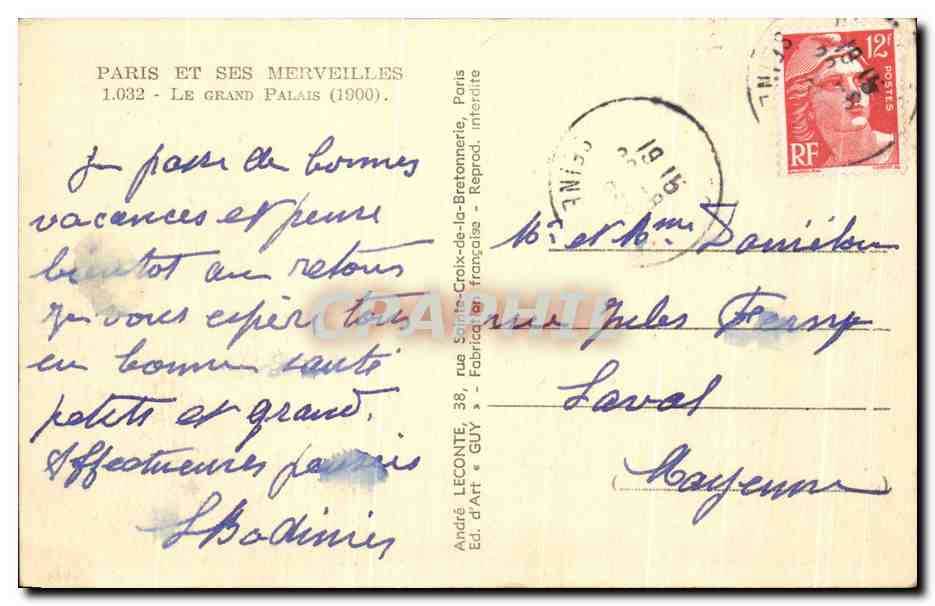 PARIS ET SES MERVEILLES
1.032 - LE GRAND PALAIS (1900).
Je passe de bonnes
vacances et pense
bientot au retour
Je vous espère tous
en bonne santé
petits et grands.
Affectueuses pensées
Bodinier
André LECONTE, 38, rue Sainte-Croix-de-la-Bretonnerie, Paris
Ed. d'Art « GUY » - Fabrication française - Reprod. interdite
SEINE
19 15
SEINE
19 15
12F
POSTES
RF
Mr et Mme Daniélou
rue Jules Ferry
Laval
(Mayenne)
CPAPHIL